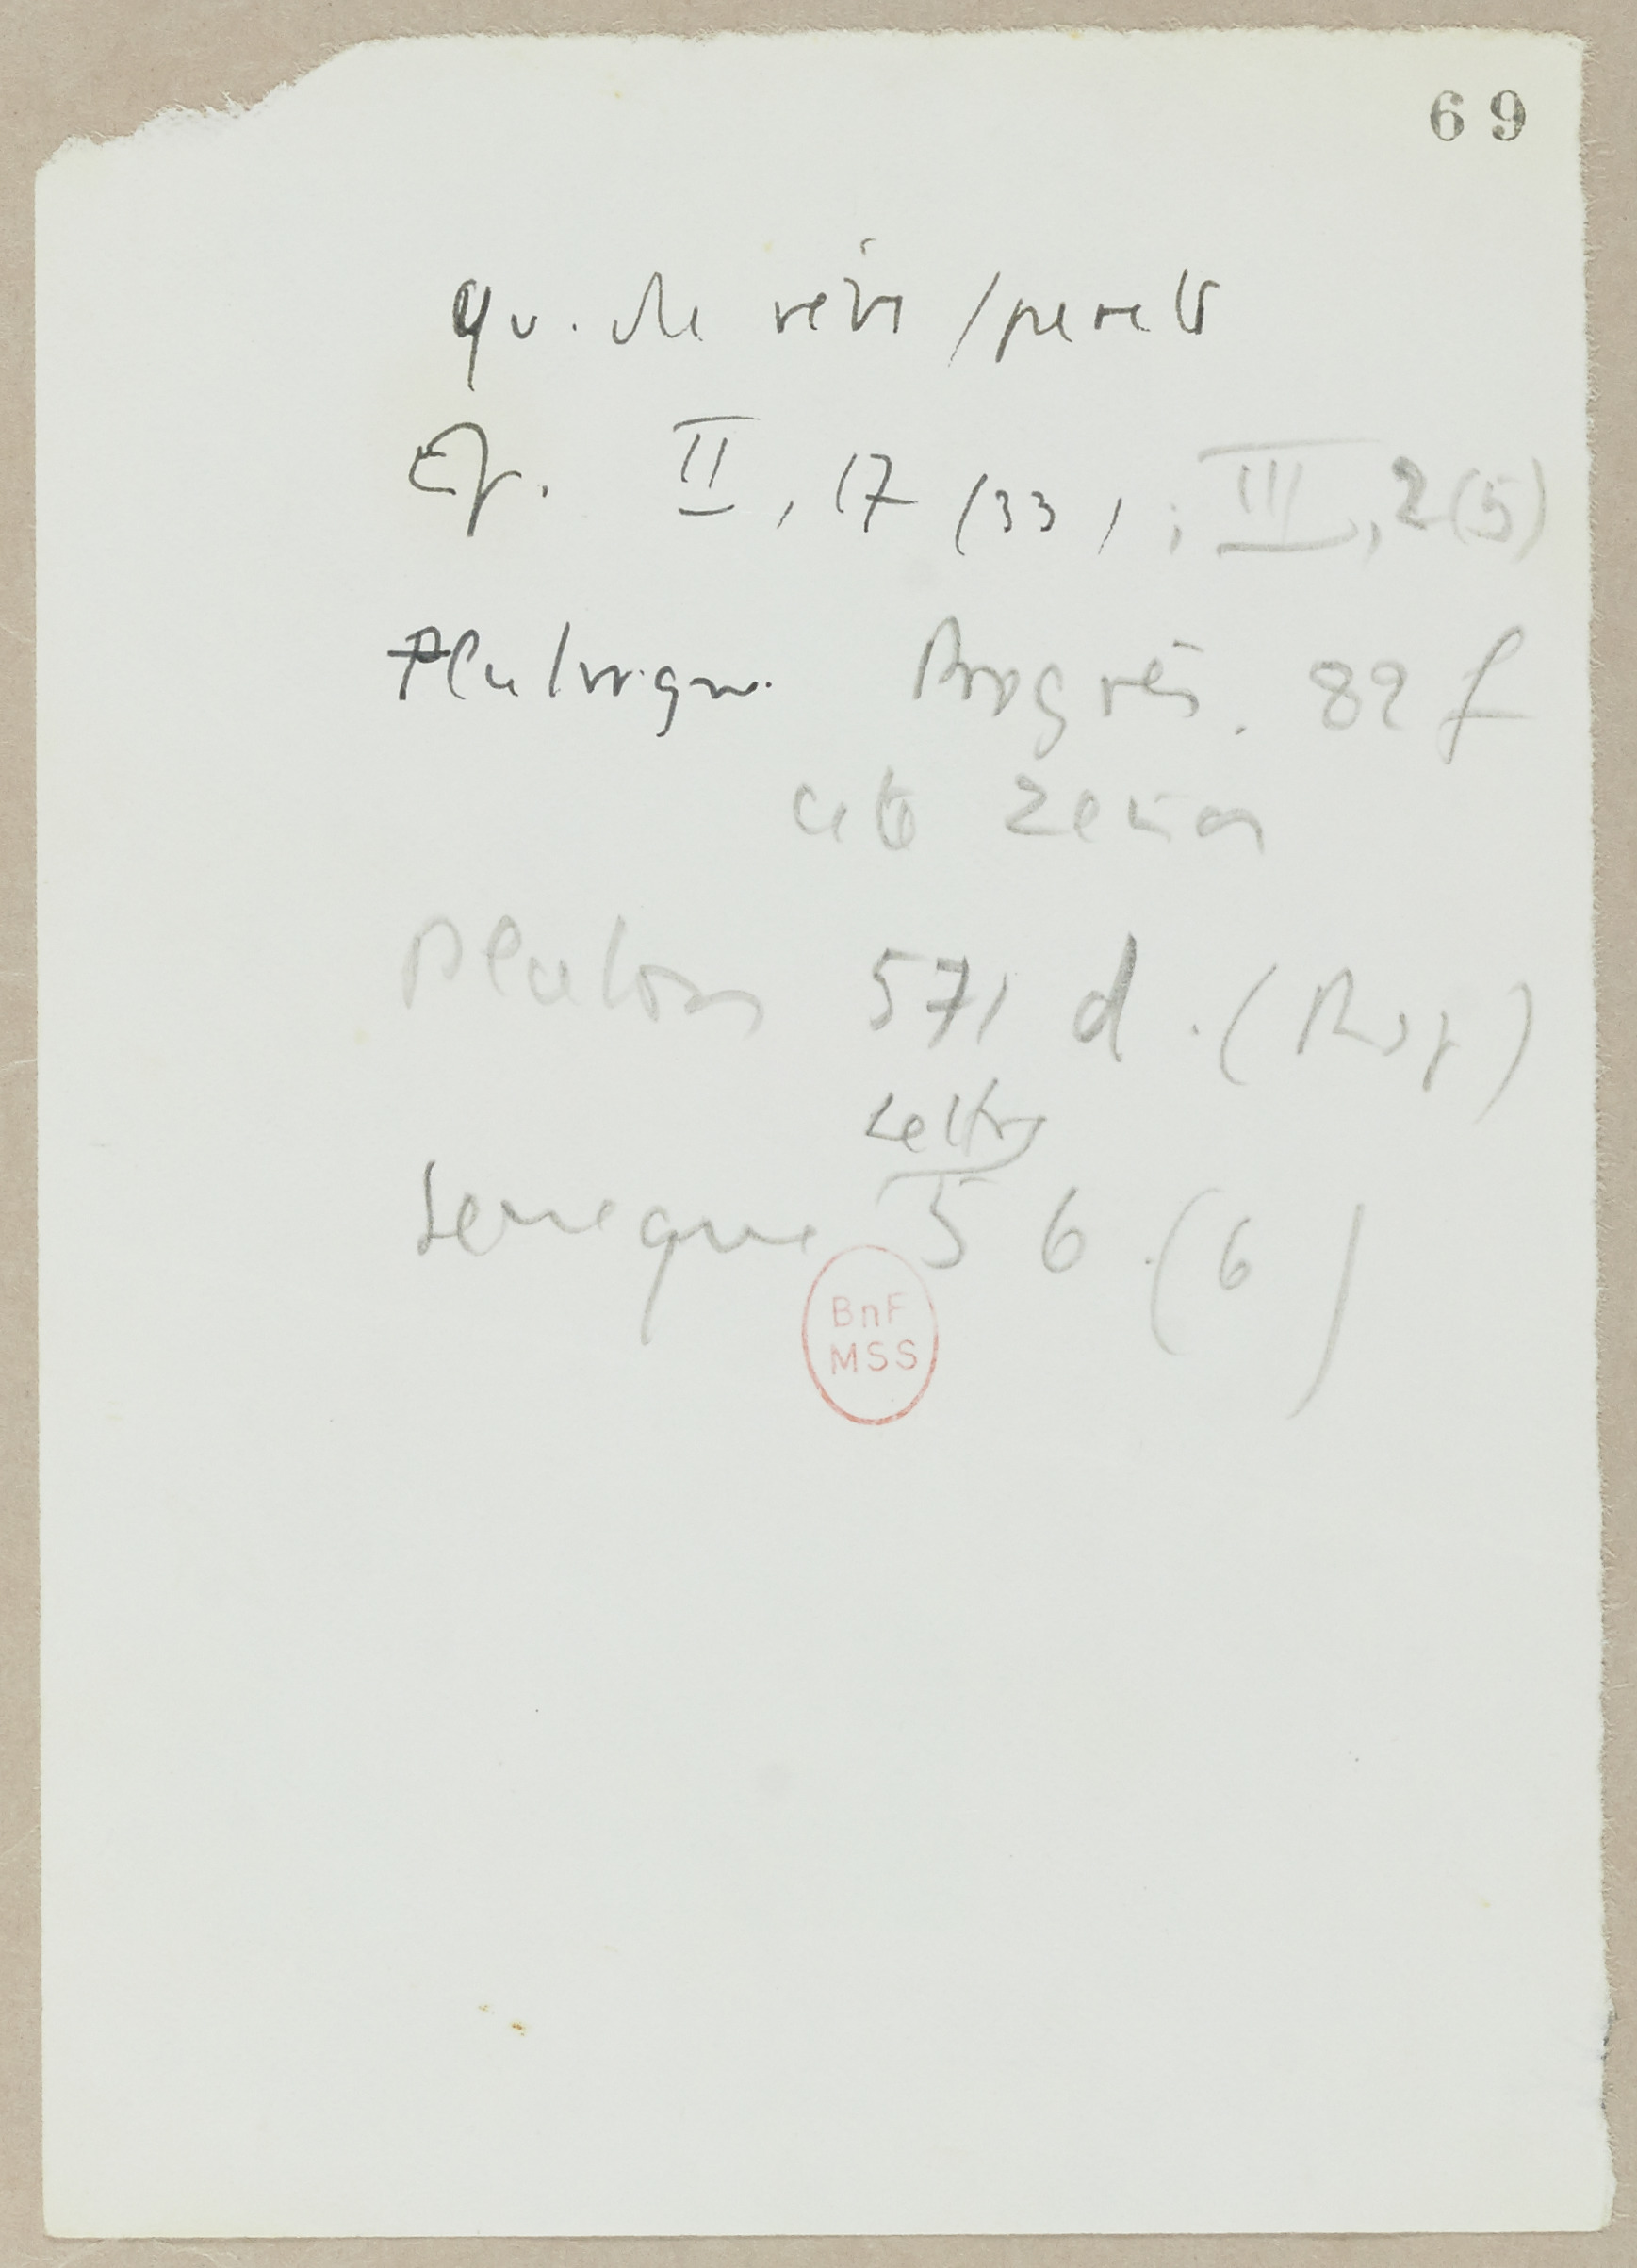 69
qu. de rêve / pureté
Ep. II, 17 (33) ; III, 2 (5)
Plutarque. Progrès. 82 f
cite Zenon
Platon 571 d. (Rep)
Lettre
Seneque 56. (6)
BnF
MSS